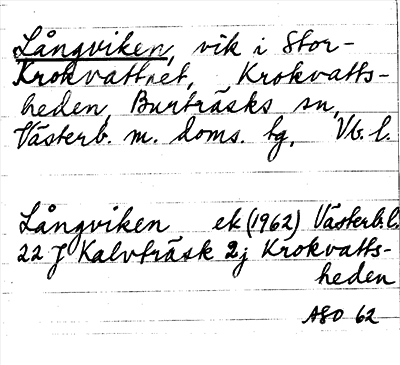 Långviken, vik i Stor-
Krokvattnet, Krokvatts-
heden, Burträsks sn,
Västerb. m. doms. tg, Vb. l.
Långviken ek (1962) Västerb. l.
22 J Kalvträsk 2j Krokvatts-
heden
ASO 62